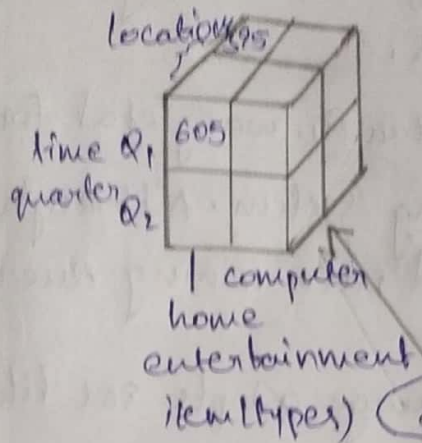 location
395
time Q1 605
quarter Q2
computer
home
entertainment
item (types)